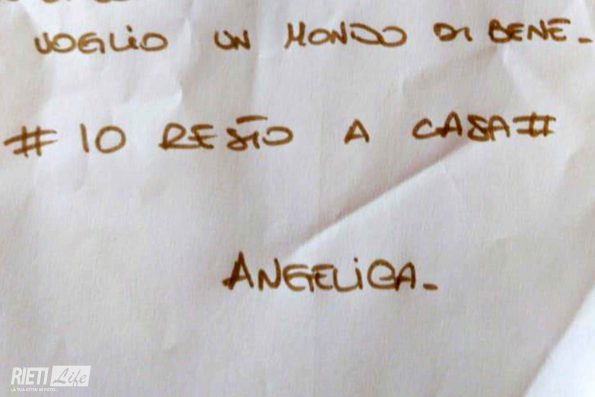 VOGLIO UN MONDO DI BENE_
# IO RESTO A CASA #
ANGELICA_
RIETI Life